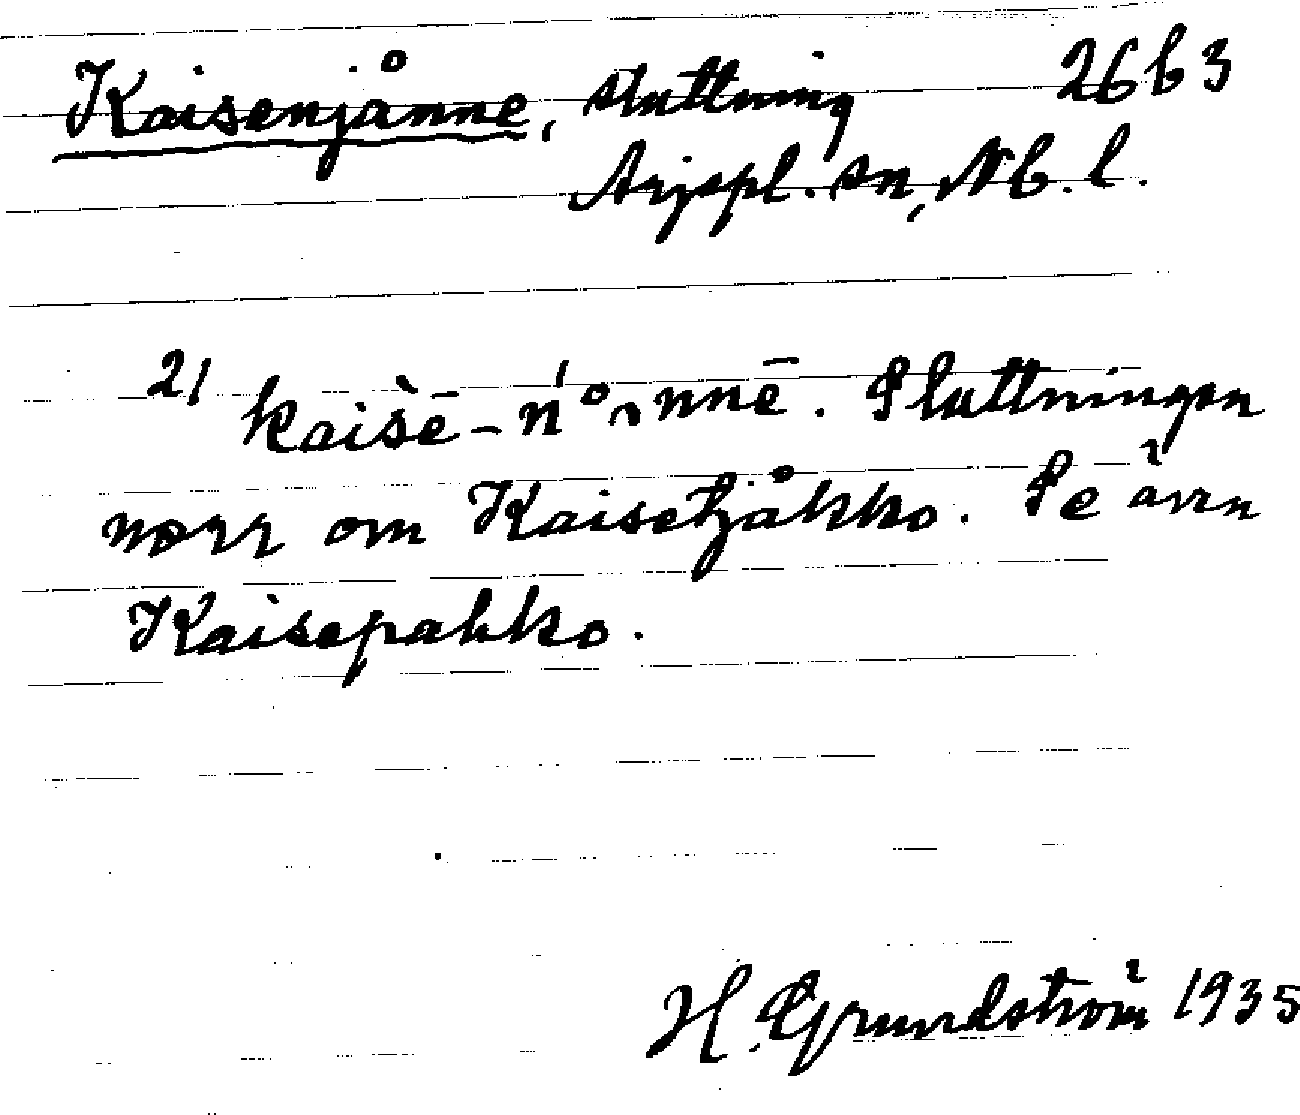 Kaisenjånne, sluttning 2663
Arjepl. sn, Nb. l.
21 kaisē-ń°ₙnnē. Sluttningen
norr om Kaisetjåkko. Se även
Kaisepakko.
H. Grundström 1935